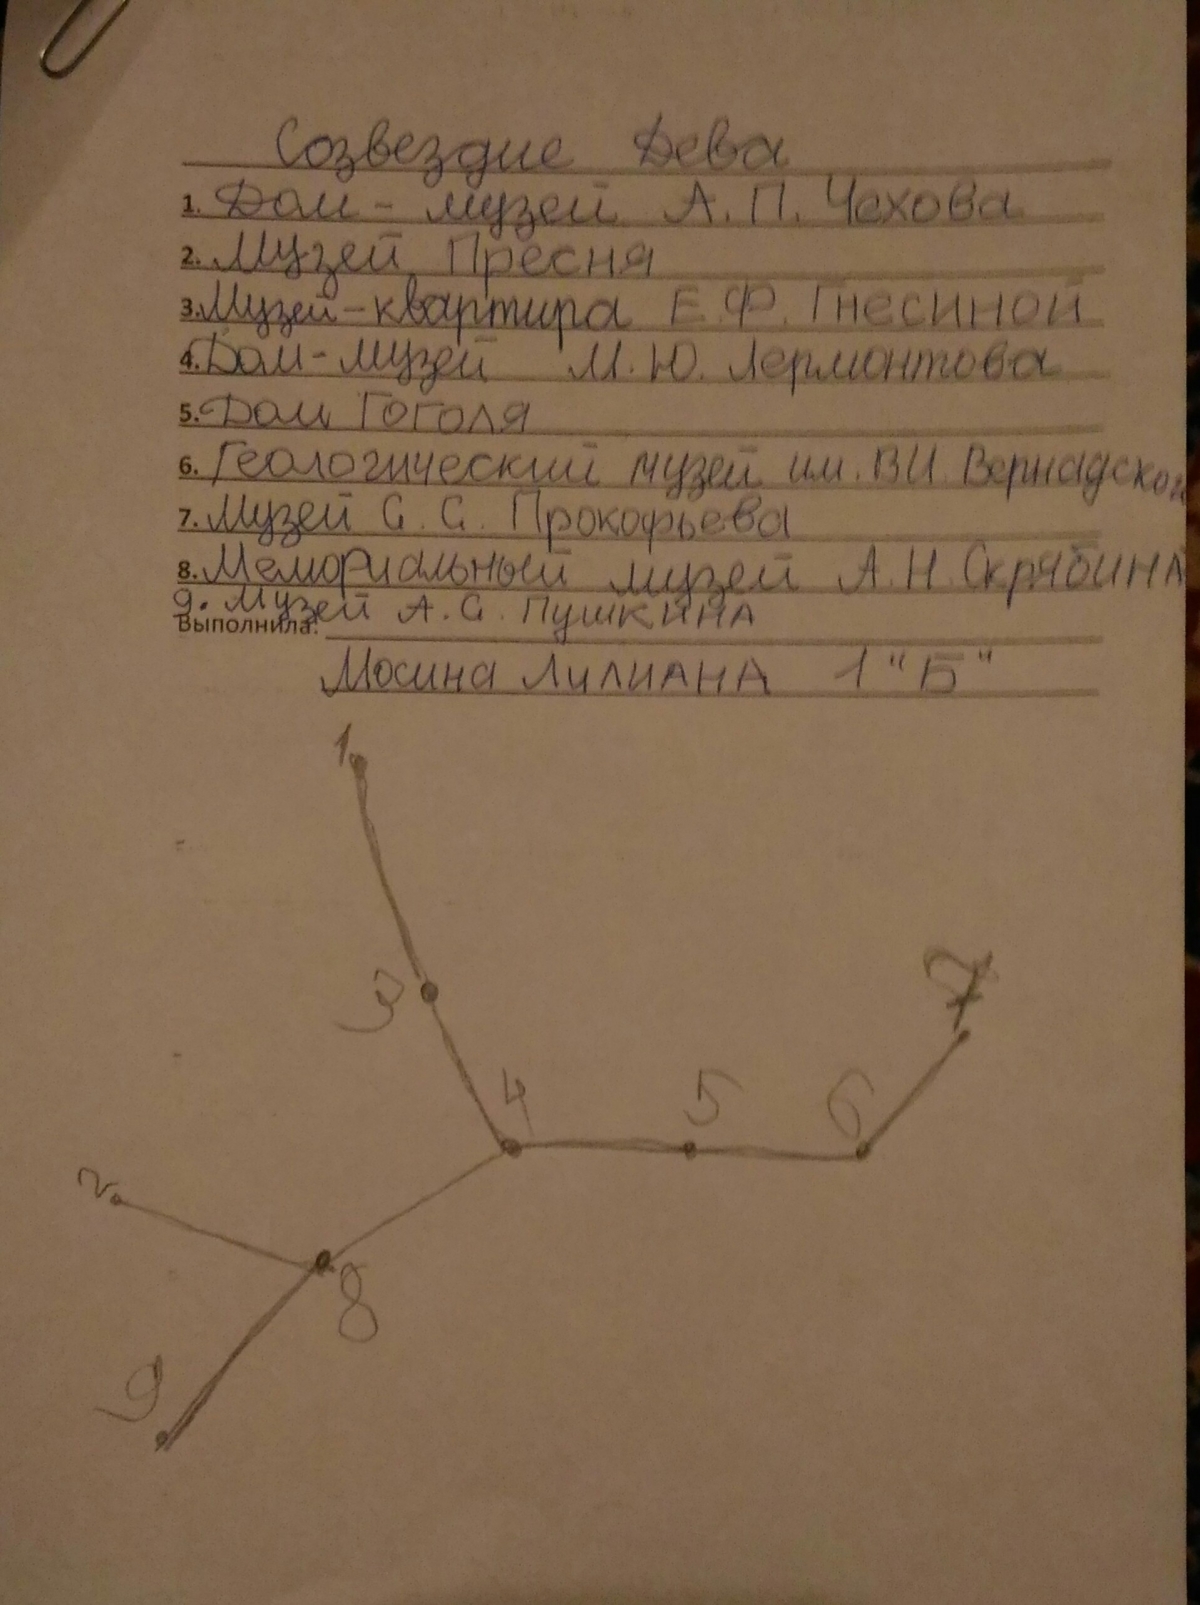 Созвездие Дева
1. Дом - музей А. П. Чехова
2. Музей Пресня
3. Музей-квартира Е.Ф. Гнесиной
4. Дом-музей М.Ю. Лермонтова
5. Дом Гоголя
6. Геологический музей им. В.И. Вернадского
7. Музей С. С. Прокофьева
8. Мемориальный музей А.Н. Скрябина
9. Музей А.С. Пушкина
Выполнила:
Мосина Лилиана 1 "Б"
1
3
7
4 5 6
2
8
9